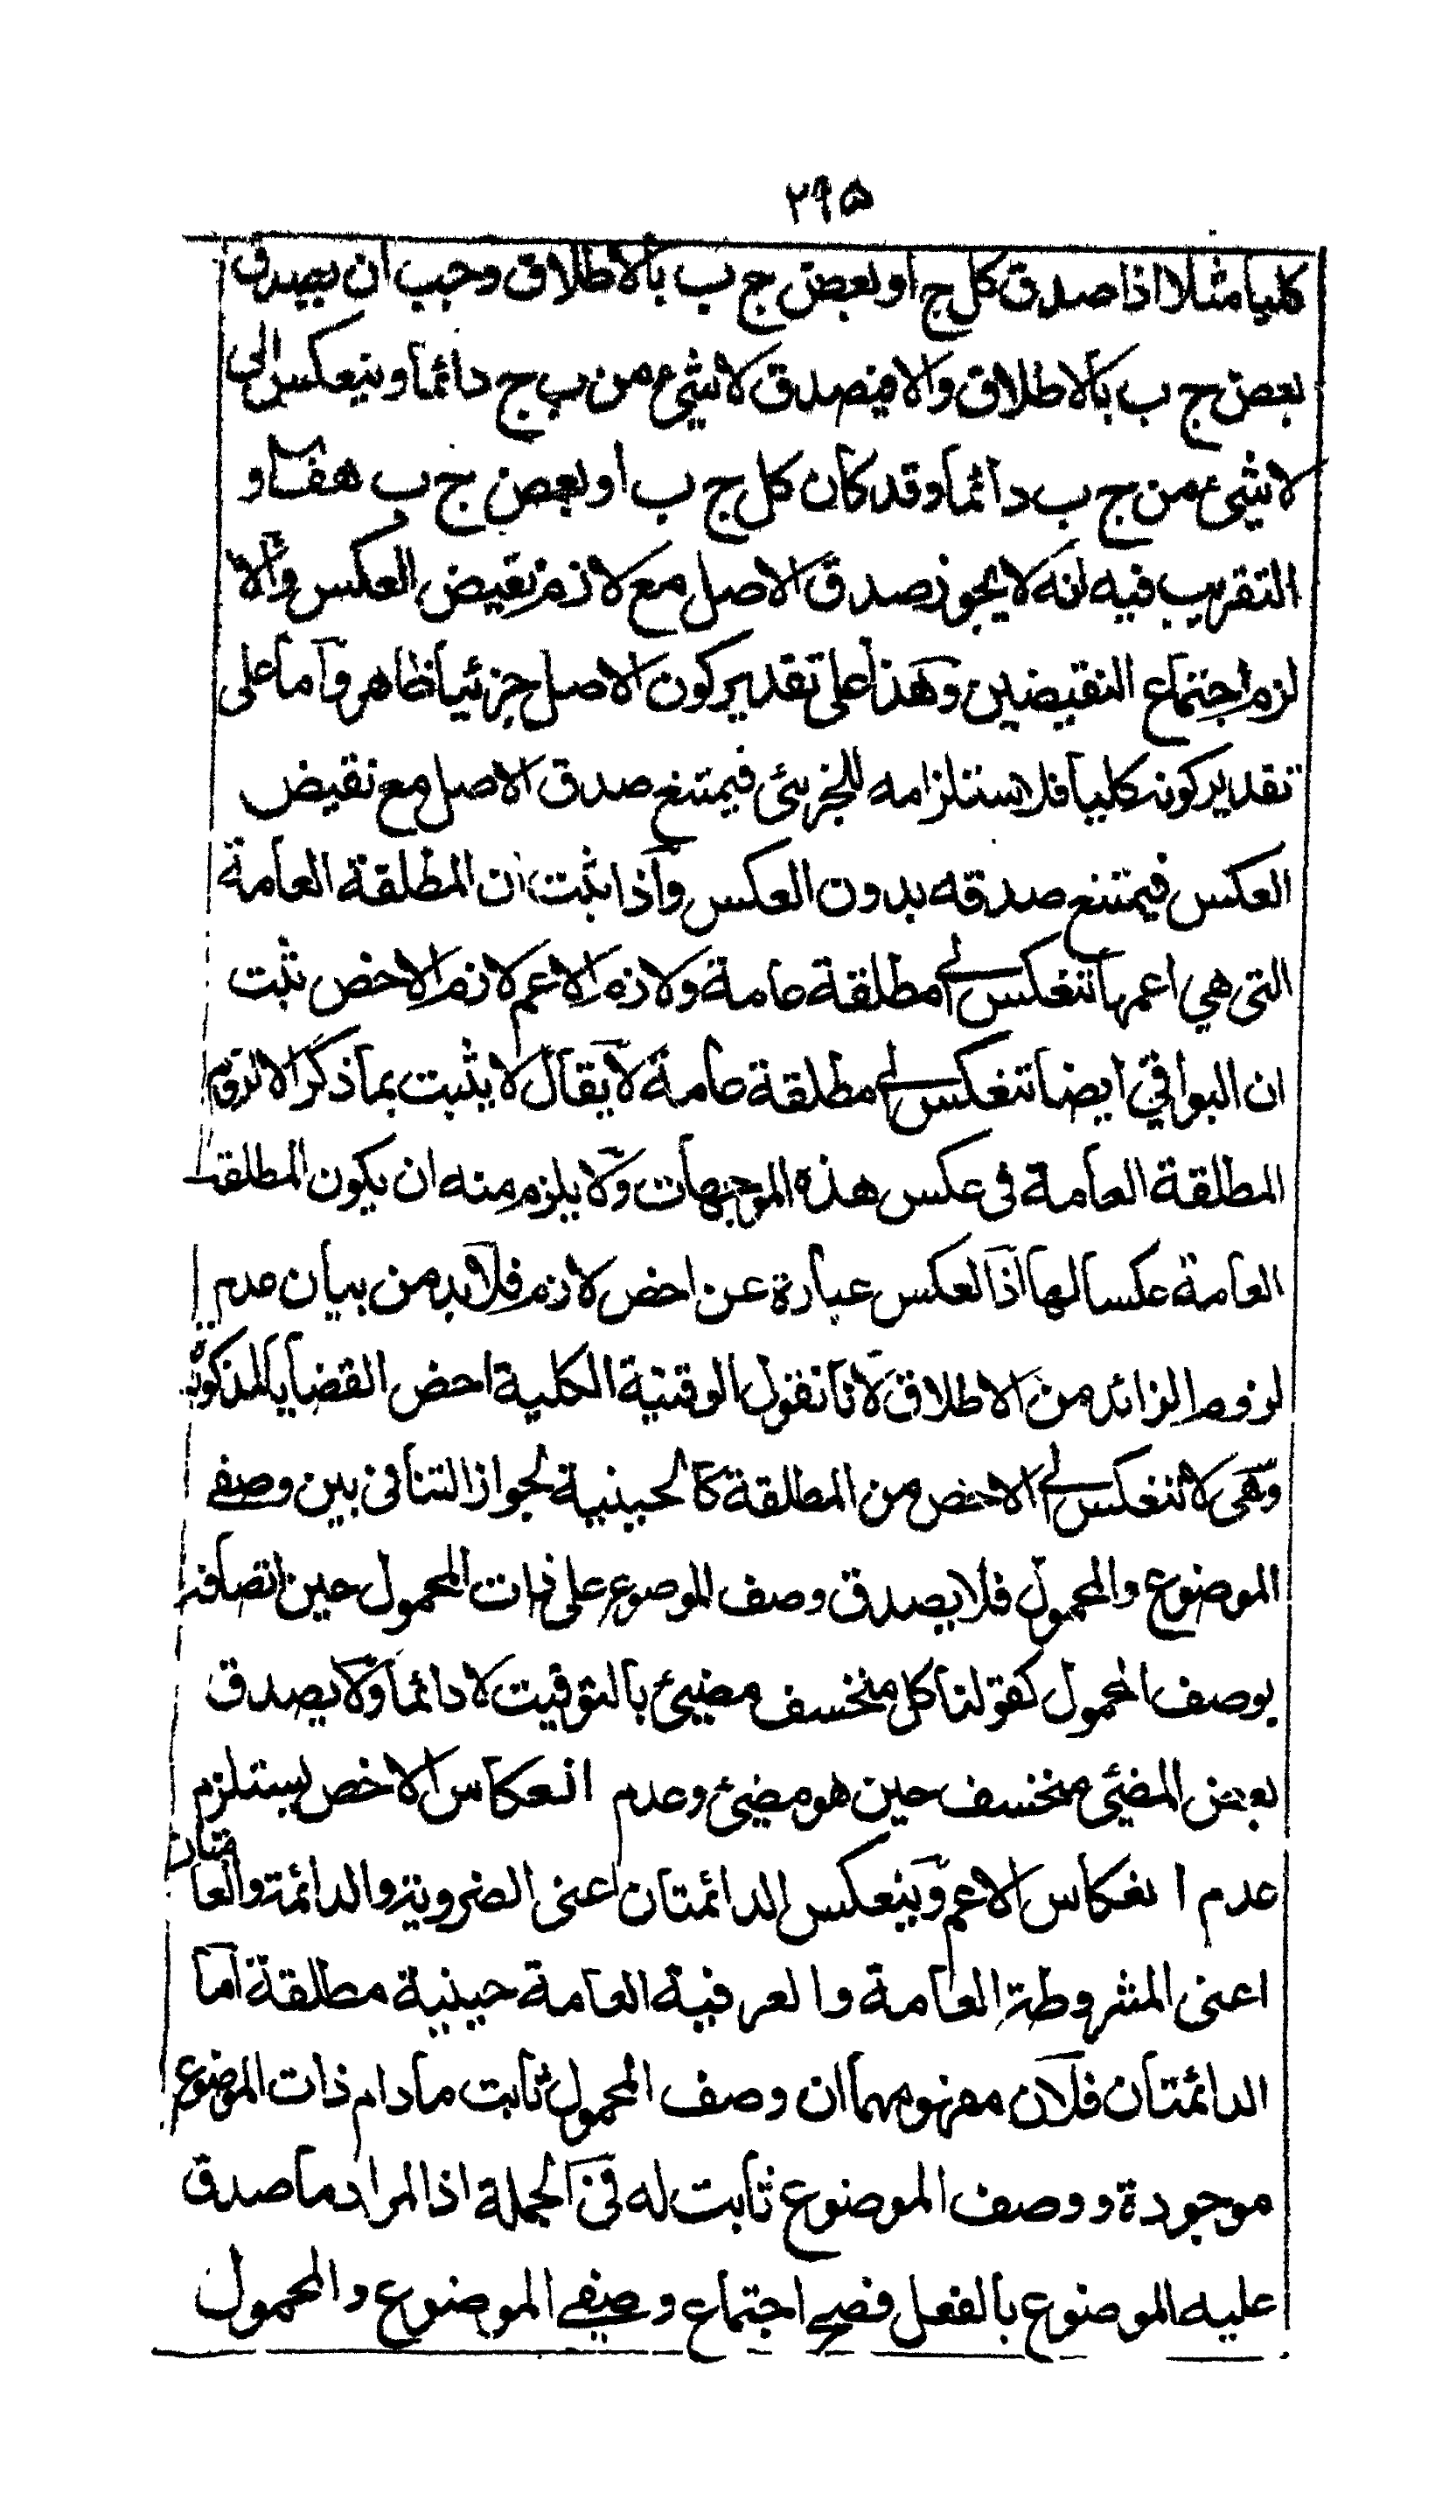 ٢٩٥
كليا مثلا اذا صدق كل ج او بعض ج ب بالاطلاق وجب ان يصدق
بعض ج ب بالاطلاق والا فيصدق لا شيء من ب ج دائما وينعكس الى
لا شيء من ج ب دائما وقد كان كل ج ب او بعض ج ب هف و
التقريب فيه انه لا يجوز صدق الاصل مع لازم نقيض العكس والا
لزم اجتماع النقيضين وهذا على تقدير كون الاصل جزئيا ظاهر واما على
تقدير كونه كليا فلاستلزامه للجزئى فيمتنع صدق الاصل مع نقيض
العكس فيمتنع صدقه بدون العكس واذا ثبت ان المطلقة العامة
التى هي اعمها تنعكس الى مطلقة عامة ولازم الاعم لازم الاخص ثبت
ان البواقي ايضا تنعكس الى مطلقة عامة لا يقال لا يثبت بما ذكر الا لزوم
المطلقة العامة فى عكس هذه الموجهات ولا يلزم منه ان يكون المطلقة
العامة عكسا لها اذ العكس عبارة عن اخص لازم فلا بد من بيان عدم
لزوم الزائد من الاطلاق لانا نقول الوقتية الكلية اخص القضايا المذكورة
وهى لا تنعكس الى الاخص من المطلقة كالحينية لجواز التنافى بين وصفى
الموضوع والمحمول فلا يصدق وصف الموضوع على ذات المحمول حين اتصافه
بوصف المحمول كقولنا كل منخسف مضيئ بالتوقيت لا دائما ولا يصدق
بعض المضيئ منخسف حين هو مضيئ وعدم انعكاس الاخص يستلزم
عدم انعكاس الاعم وينعكس الدائمتان اعنى الضروية والدائمة والعامتان
اعنى المشروطة العامة والعرفية العامة حينية مطلقة اما
الدائمتان فلان مفهومهما ان وصف المحمول ثابت ما دام ذات الموضوع
موجودة ووصف الموضوع ثابت له فى الجملة اذ المراد ما صدق
عليه الموضوع بالفعل فصح اجتماع وصفى الموضوع والمحمول